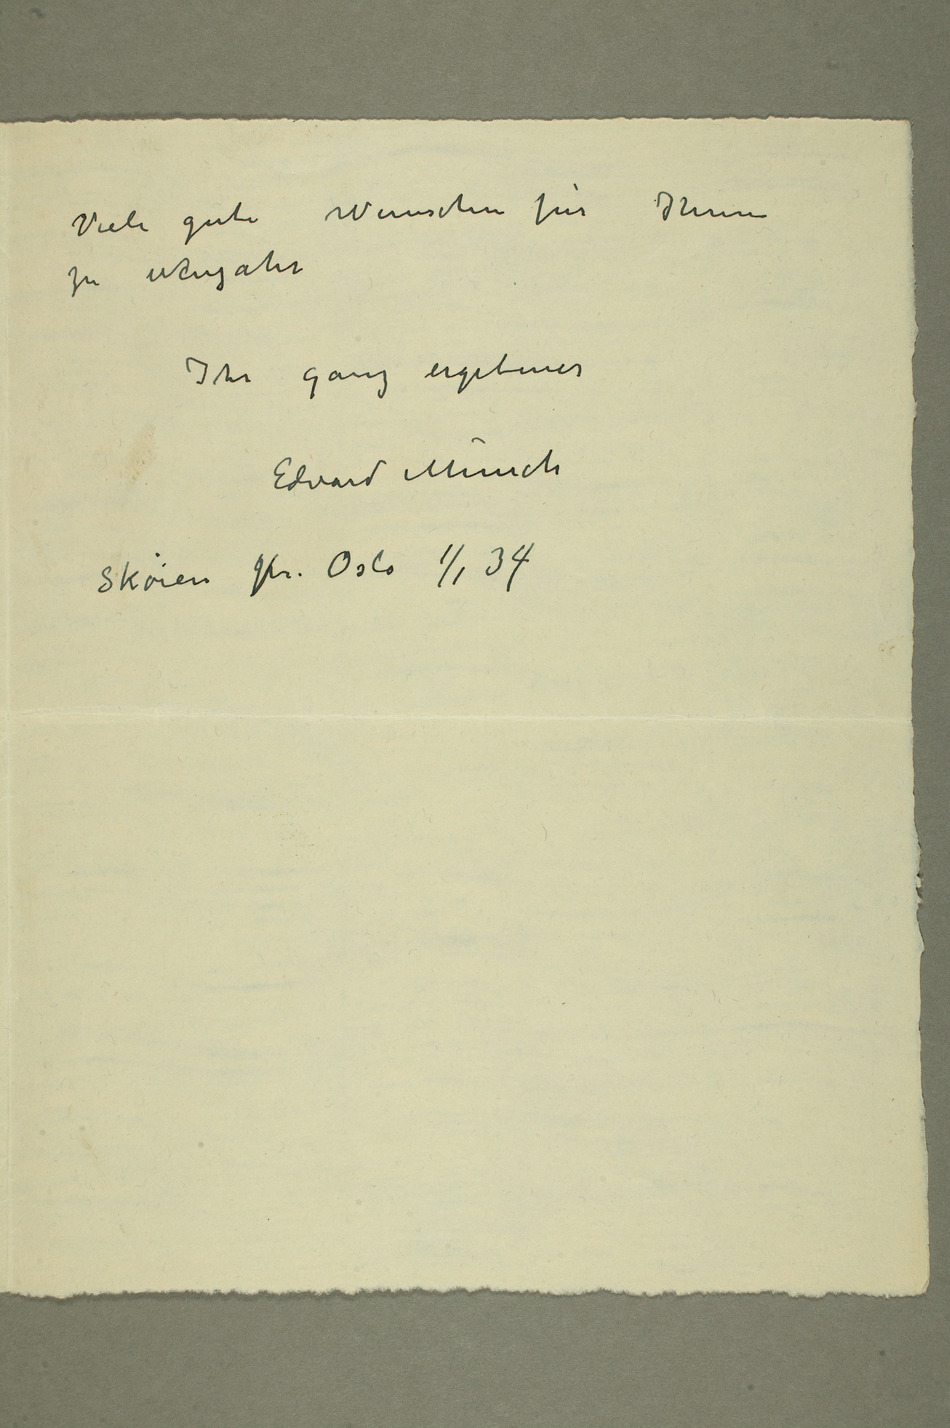 Viele gute Wünschen für Ihnen
zu Neujahr
Ihr ganz ergebener
Edvard Munch
Skøien pr. Oslo 1/1 34